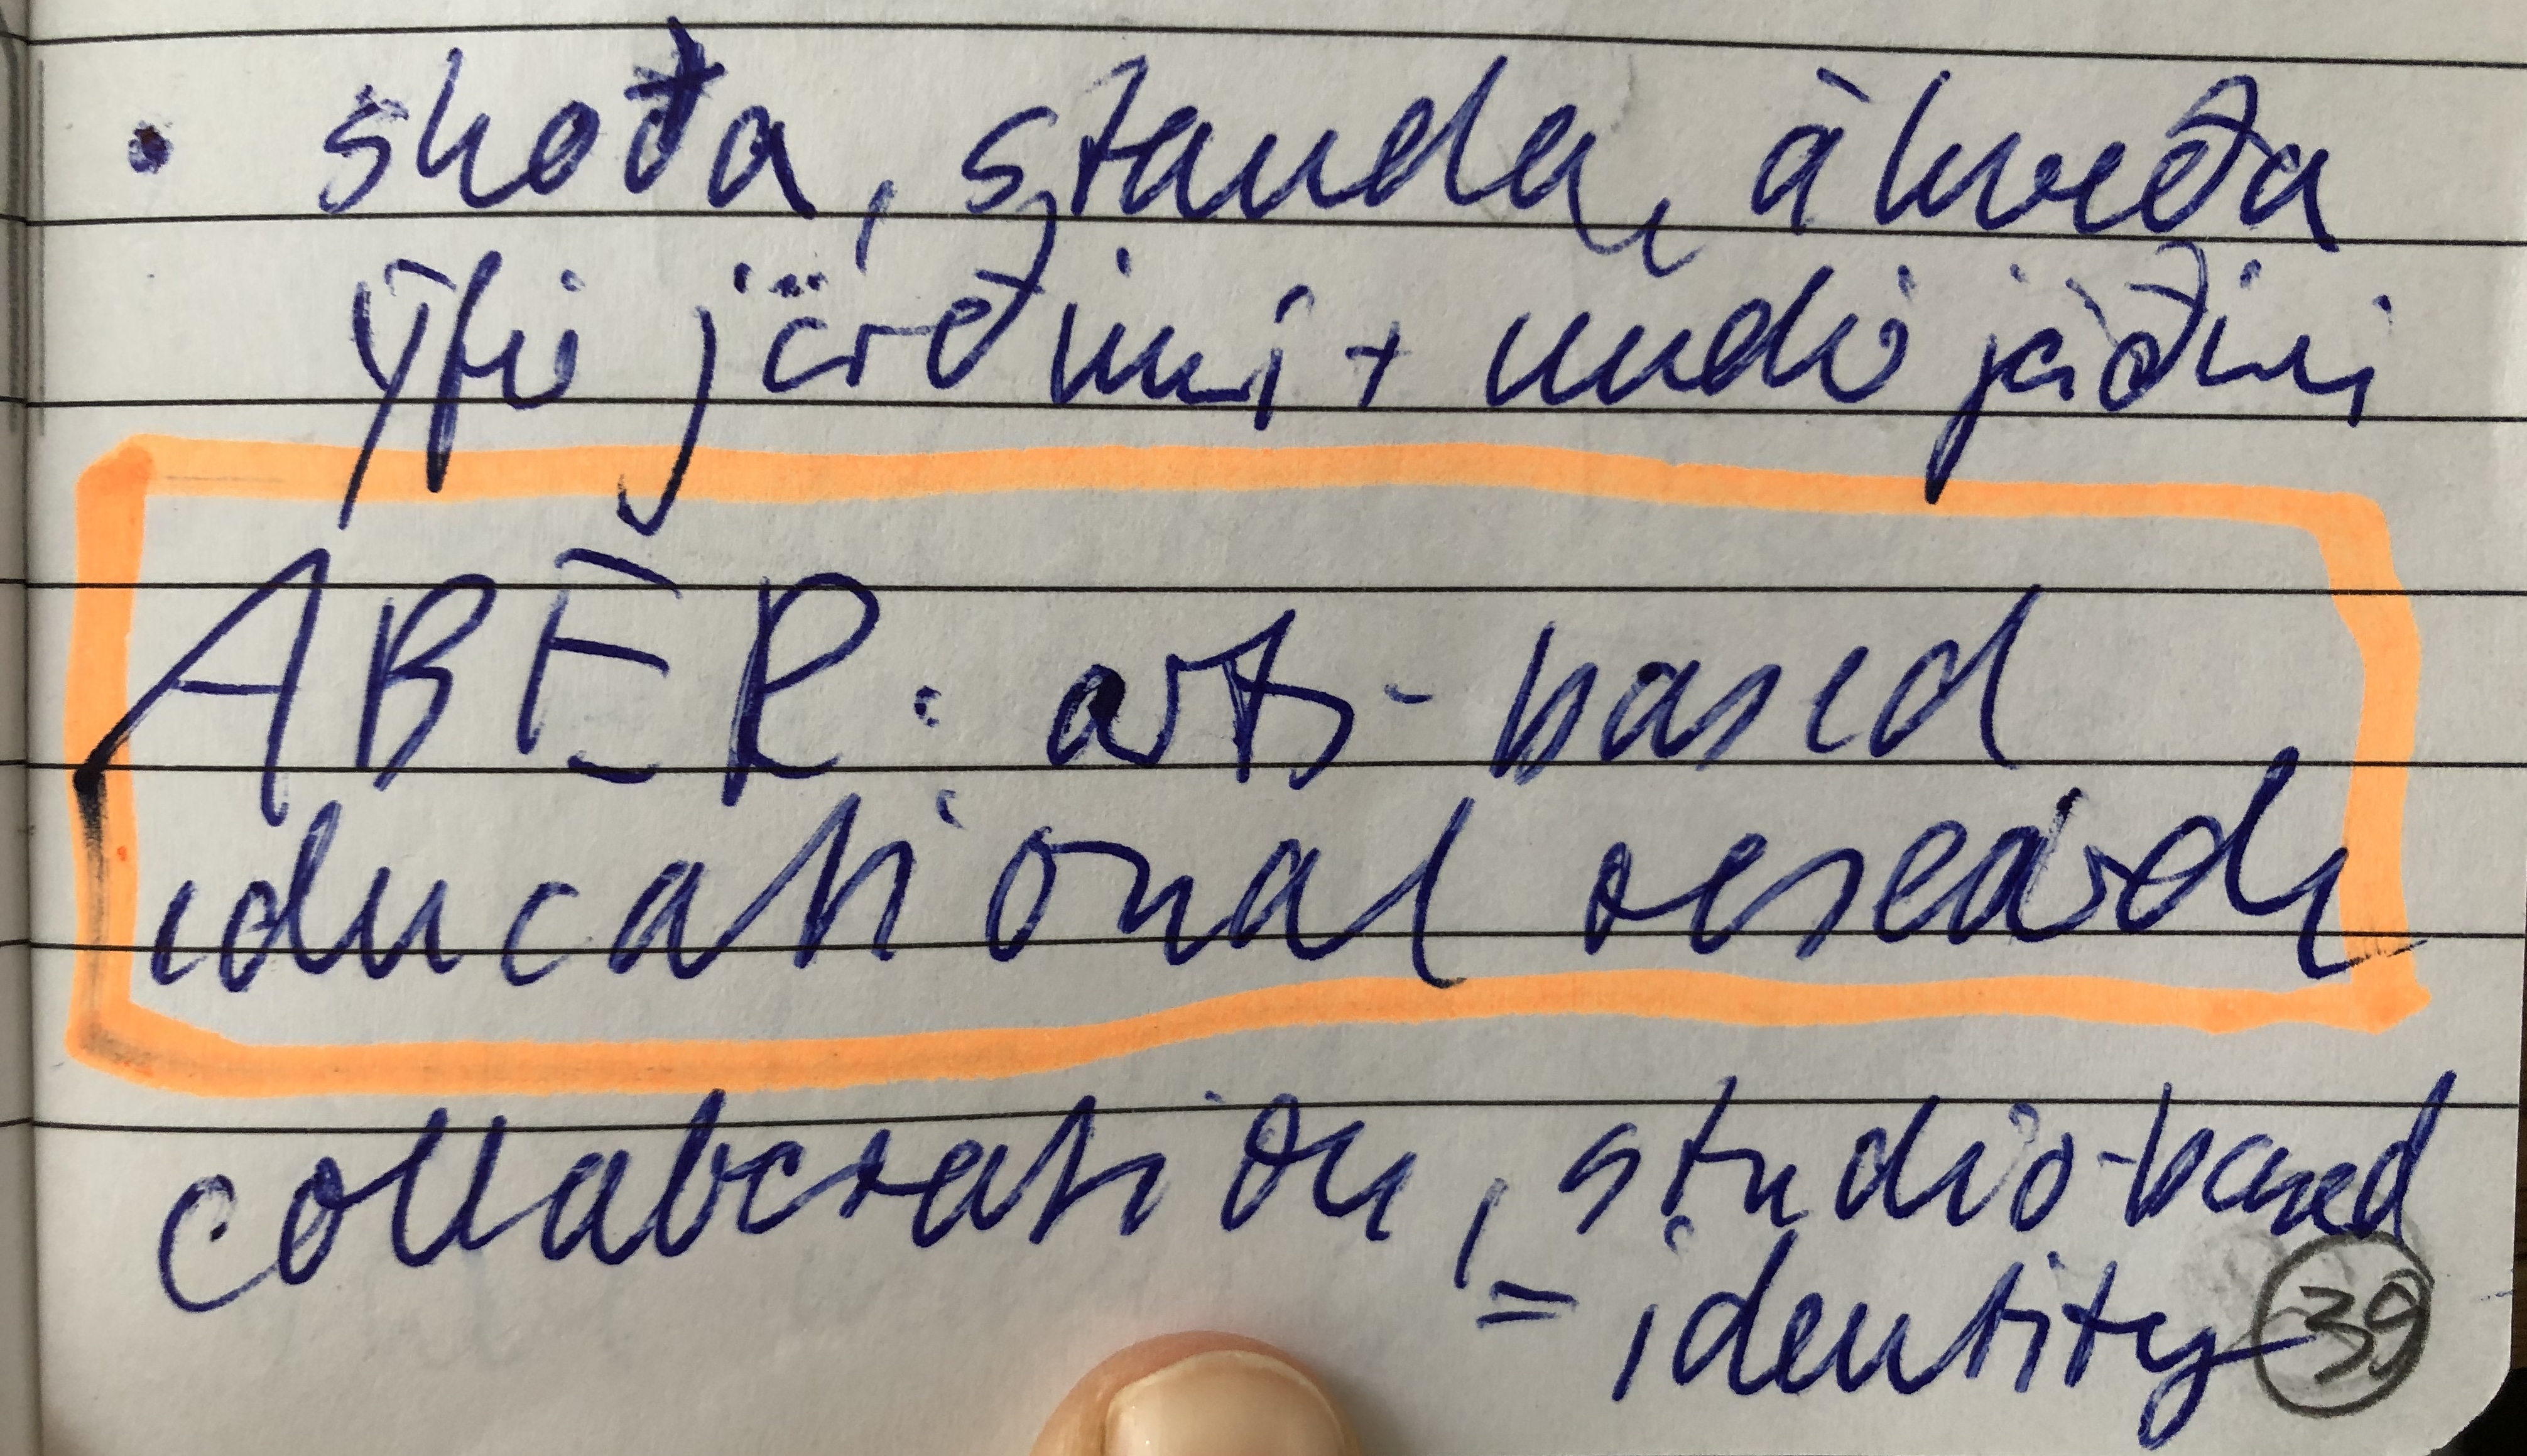 • skoða, standa, ákveða
yfir jörðinni + undir jörðinni
ABER: arts-based
educational research
collaboration, studio-based
= identity
39